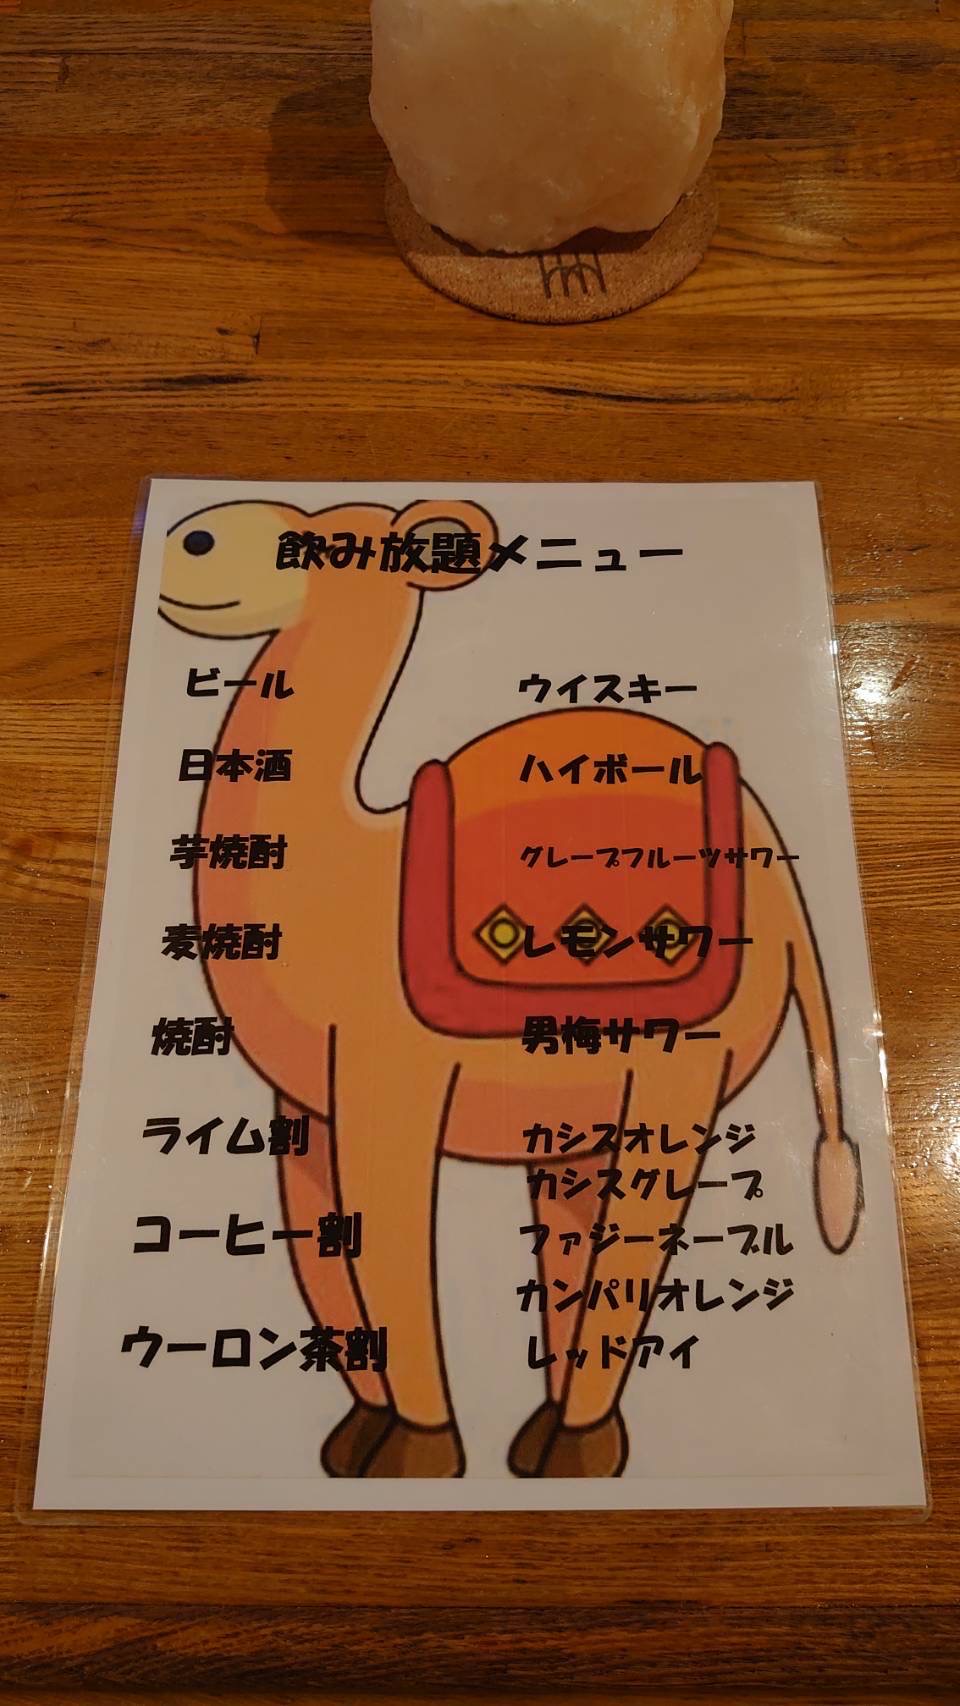 飲み放題メニュー
ビール
日本酒
芋焼酎
麦焼酎
焼酎
ライム割
コーヒー割
ウーロン茶割
ウイスキー
ハイボール
グレープフルーツサワー
レモンサワー
男梅サワー
カシスオレンジ
カシスグレープ
ファジーネーブル
カンパリオレンジ
レッドアイ